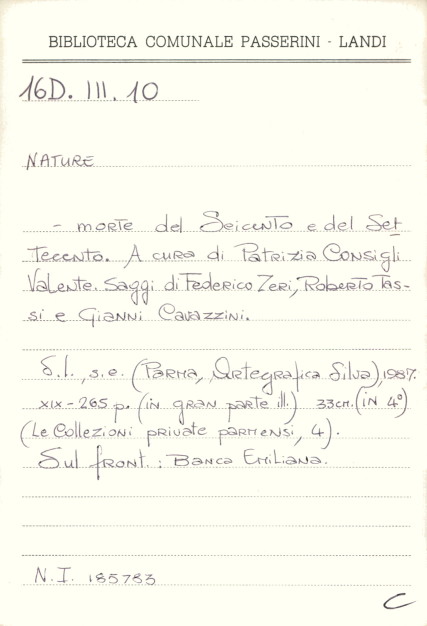 BIBLIOTECA COMUNALE PASSERINI - LANDI
16D. III. 10
NATURE
- morte del Seicento e del Set
tecento. A cura di Patrizia Consigli
Valente. Saggi di Federico Zeri, Roberto Tas-
si e Gianni Cavazzini.
S.l., s.e. (Parma, Artegrafica Silva), 1987.
XIX-265 p. (in gran parte ill.) 33cm. (in 4°)
(Le Collezioni private parmensi, 4).
Sul front.: Banca Emiliana.
N.I. 185783
C